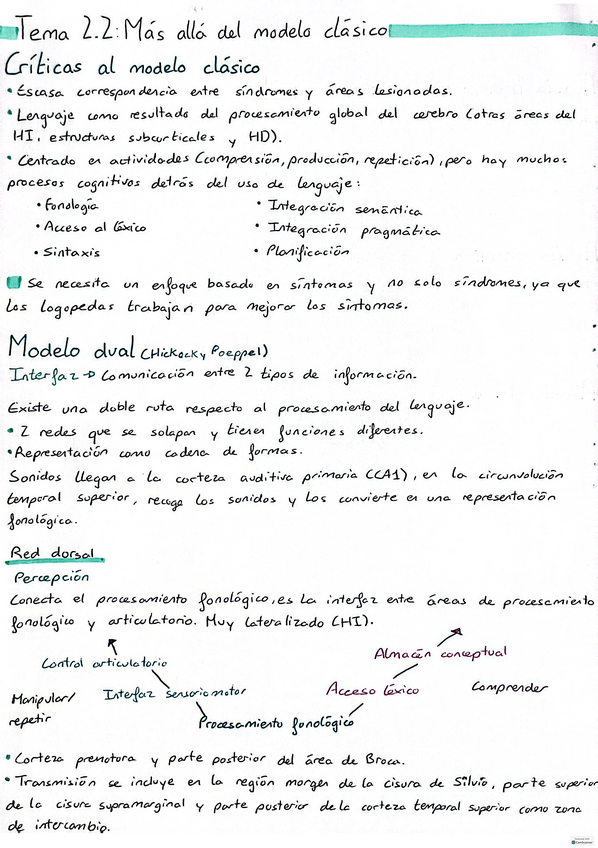 Tema 2.2: Más allá del modelo clásico
Críticas al modelo clásico
• Escasa correspondencia entre síndromes y áreas lesionadas.
• Lenguaje como resultado del procesamiento global del cerebro (otras áreas del
HI, estructuras subcorticales y HD).
• Centrado en actividades (comprensión, producción, repetición), pero hay muchos
procesos cognitivos detrás del uso de lenguaje:
• Fonología • Integración semántica
• Acceso al léxico • Integración pragmática
• Sintaxis • Planificación
Se necesita un enfoque basado en síntomas y no solo síndromes, ya que
los logopedas trabajan para mejorar los síntomas.
Modelo dual (Hickock y Poeppel)
Interfaz → Comunicación entre 2 tipos de información.
Existe una doble ruta respecto al procesamiento del lenguaje.
• 2 redes que se solapan y tienen funciones diferentes.
• Representación como cadena de formas.
Sonidos llegan a la corteza auditiva primaria (CA1), en la circunvolución
temporal superior, recoge los sonidos y los convierte en una representación
fonológica.
Red dorsal
Percepción
Conecta el procesamiento fonológico, es la interfaz entre áreas de procesamiento
fonológico y articulatorio. Muy lateralizado (HI).
Control articulatorio Almacén conceptual
Manipular/ Interfaz sensoriomotor Acceso léxico Comprender
repetir Procesamiento fonológico
• Corteza premotora y parte posterior del área de Broca.
• Transmisión se incluye en la región margen de la cisura de Silvio, parte superior
de la cisura supramarginal y parte posterior de la corteza temporal superior como zona
de intercambio.